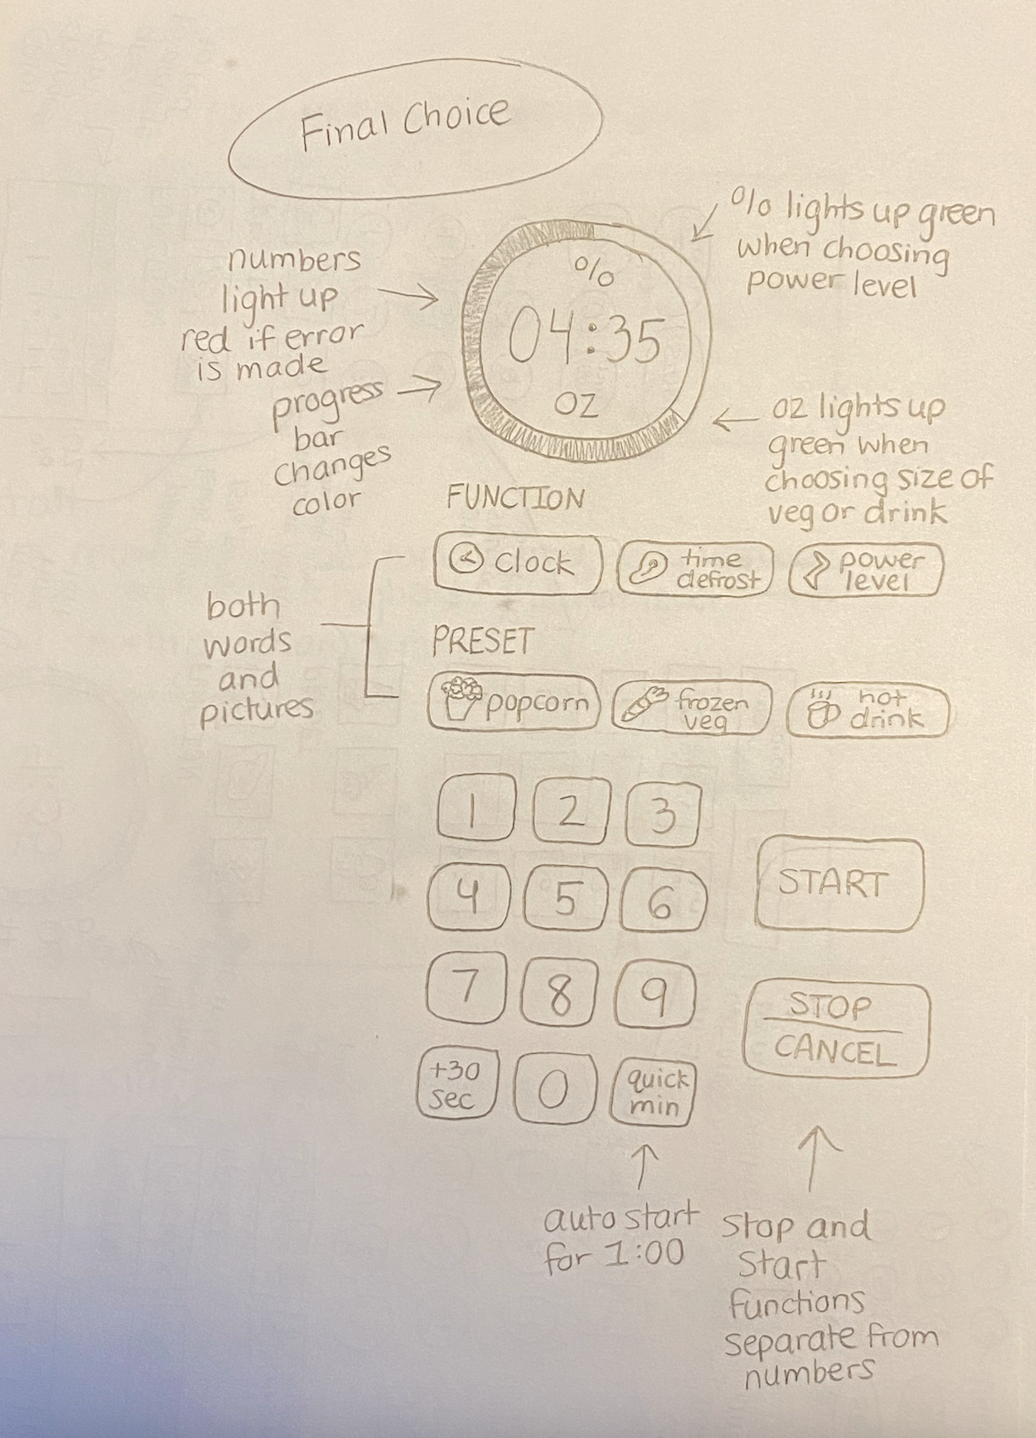 Final Choice
% lights up green
when choosing
power level
numbers
light up
red if error
is made
progress
bar
changes
color
%
04:35
OZ
OZ lights up
green when
choosing size of
veg or drink
FUNCTION
clock
time
defrost
power
level
both
words
and
pictures
PRESET
popcorn
frozen
veg
hot
drink
1 2 3
4 5 6
7 8 9
+30
sec
0
quick
min
START
STOP
CANCEL
auto start
for 1:00
Stop and
Start
functions
separate from
numbers